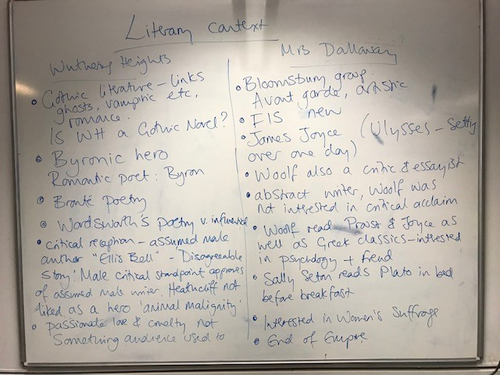 Literary context
Wuthering Heights
• Gothic literature – links
ghosts, vampiric etc,
romance.
Is WH a Gothic Novel?
• Byronic hero
Romantic poet: Byron
• Brontë poetry
• Wordsworth's poetry v. influenced
• critical reception – assumed male
author "Ellis Bell" – 'Disagreeable
story' Male critical standpoint approves
of assumed male writer. Heathcliff not
liked as a hero 'animal malignity'
• passionate love & cruelty not
something audience used to
Mrs Dalloway
• Bloomsbury group.
Avant garde, artistic
• FIS new
• James Joyce (Ulysses – setting
over one day)
• Woolf also a critic & essayist
• abstract writer, Woolf was
not interested in critical acclaim
• Woolf read Proust & Joyce as
well as Greek classics – interested
in psychology + Freud
• Sally Seton reads Plato in bed
before breakfast
• Interested in Women's Suffrage
• End of Empire